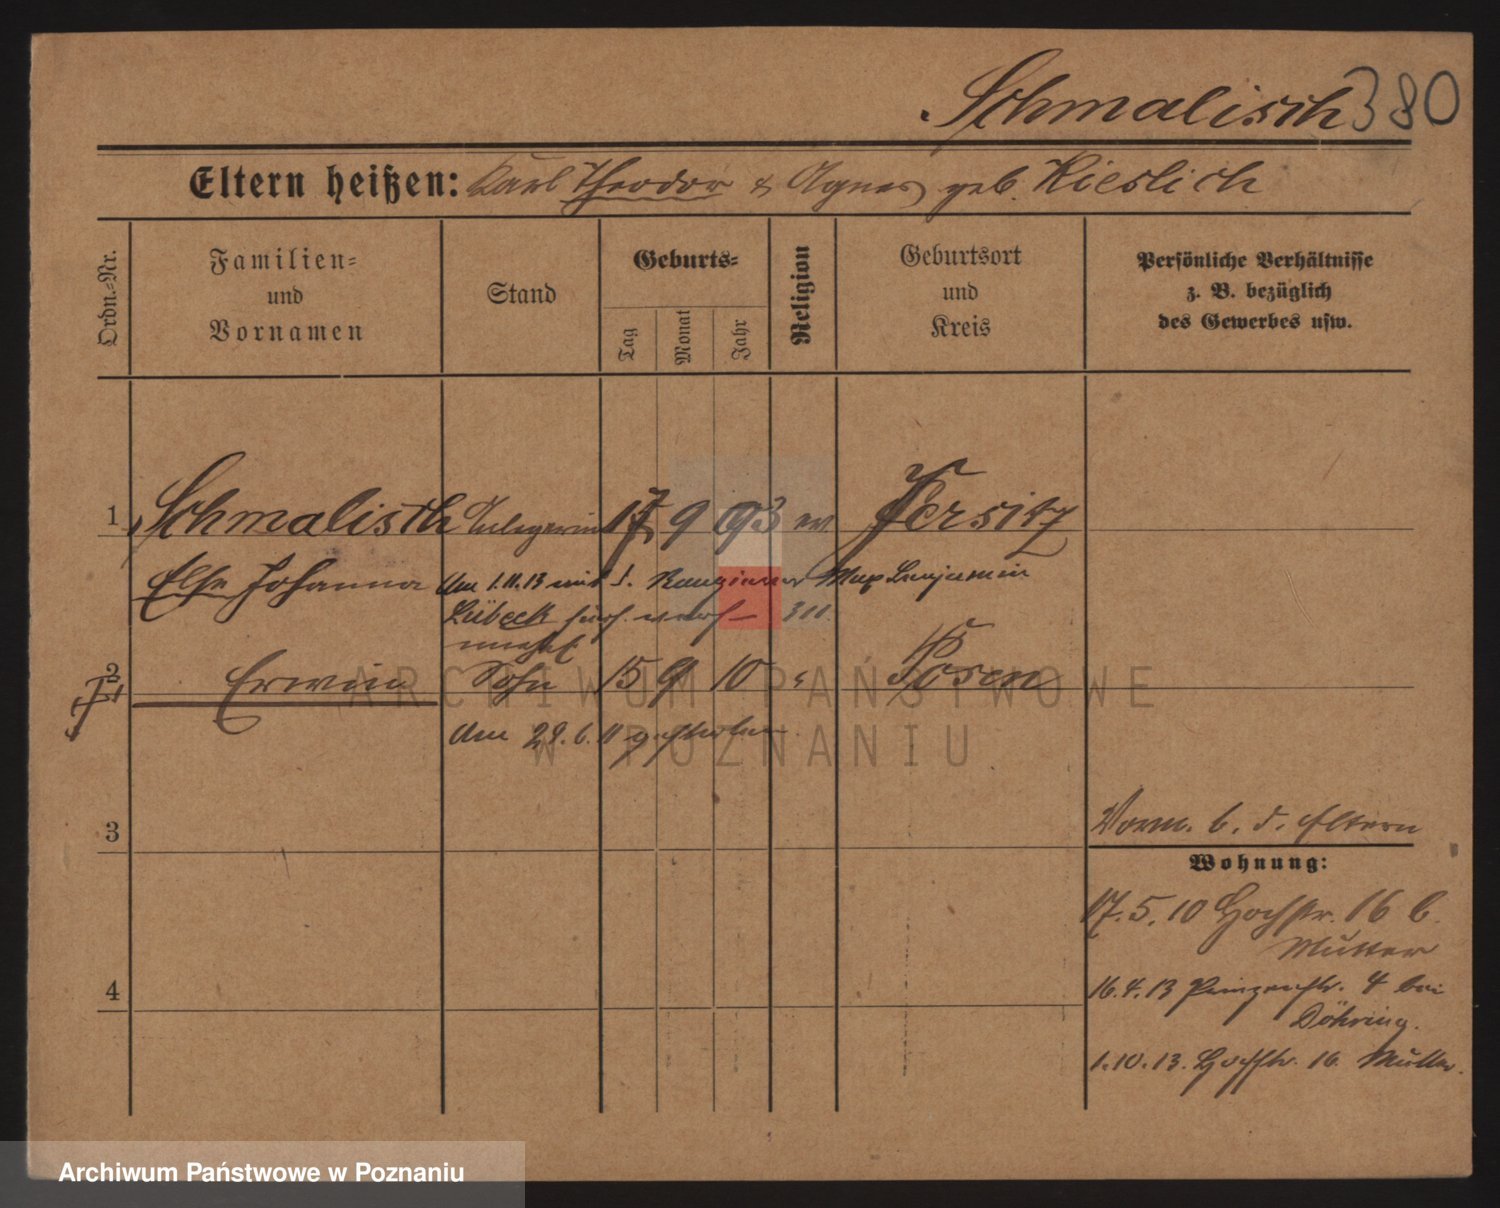 Schmalisch 380
Eltern heißen: Karl Theodor & Agnes geb. Kieslich
Ordn.-Nr.
Familien-
und
Vornamen
Stand
Geburts-
Tag
Monat
Jahr
Religion
Geburtsort
und
Kreis
Persönliche Verhältnisse
z. B. bezüglich
des Gewerbes usw.
1 Schmalisch 17 9 93 ev Jersitz
Else Johanna Am 1.11.13 mit d. Max Benjamin
Lübeck
2 Erwin Sohn 15 9 10 " Posen
Am 29.6.11 gestorben.
3
4
Vorm. b. d. Eltern
Wohnung:
17.5.10 Hochstr. 16 b.
Mutter
16.4.13 Prinzenstr. 4 bei
Döhring.
1.10.13. Hochstr. 16. Mutter.
ARCHIWUM PAŃSTWOWE
W POZNANIU
Archiwum Państwowe w Poznaniu